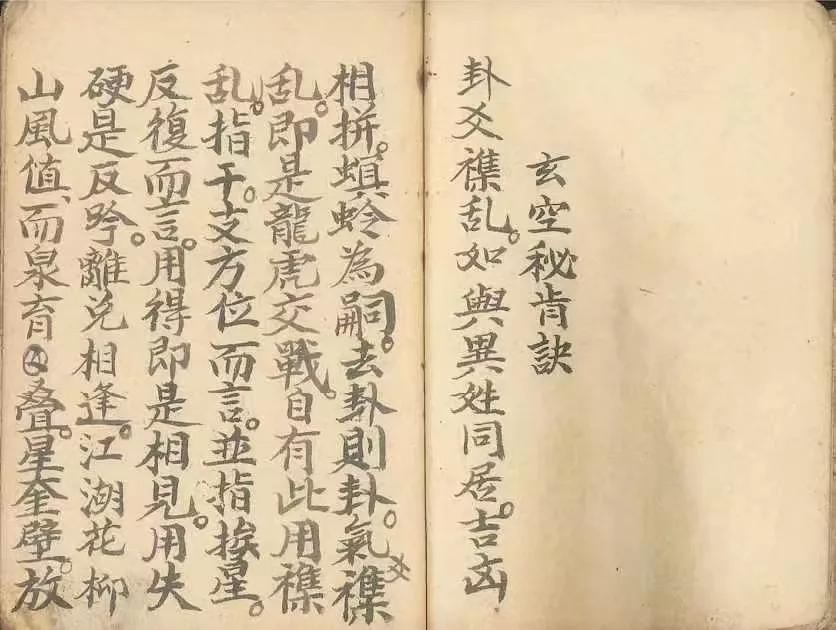 玄空秘肯訣
卦爻襍乱。如與異姓同居。吉凶
相拼。螟蛉為嗣。去卦則卦。氣襍
乱。即是龍虎交戰。自有此用襍
乱。指干。支方位而言。並指挨星。
反復而言。用得即是相見。用失
硬是反吟。離兌相逢。江湖花柳
山風值、而泉育叠。星奎壁。放